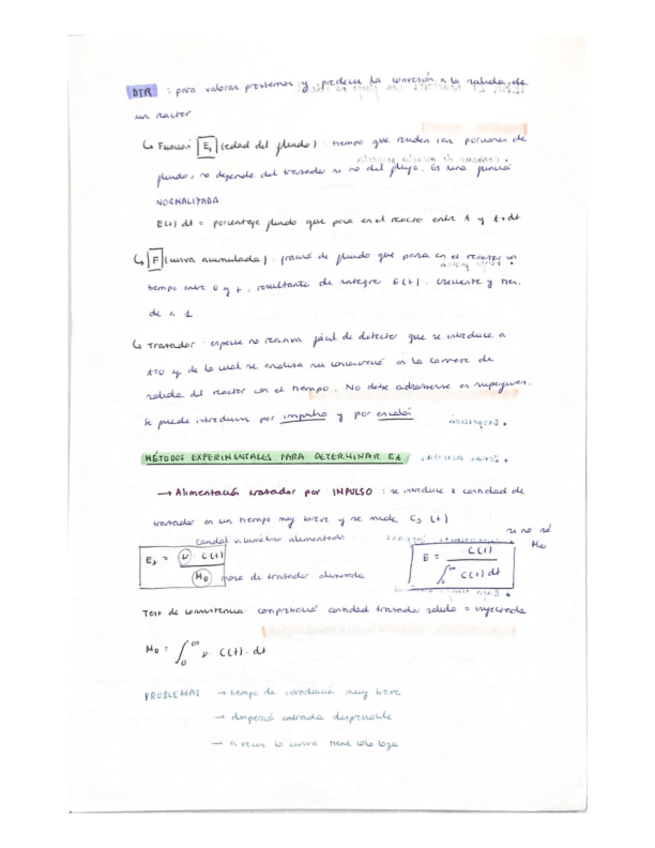 DTR : para valorar problemas y predecir la conversión a la salida de
un reactor
↳ Función E_t (edad del fluido) : tiempo que las porciones de
fluido, no depende del trazador si no del flujo. Es una función
NORMALIZADA
E(t) dt = porcentaje fluido que pasa en el reactor entre t y t+dt
↳ F (curva acumulada) : fracció de fluido que pasa en el reactor un
tiempo entre 0 y t, resultante de integrar E(t). creciente y
de a 1
↳ Trazador : especie no reactiva fácil de detectar que se introduce a
t=0 y de la cual se analiza su concentració en la corriente de
salida del reactor con el tiempo. No debe adsorberse en superficies.
Se puede introducir por impulso y por escaló
MÉTODOS EXPERIMENTALES PARA DETERMINAR E_t
→ Alimentació trazador por IMPULSO : se introduce x cantidad de
trazador en un tiempo muy breve y se mide C_s (t)
caudal volumétrico alimentado
si no sé M_0
E_t = ν · C(t) / M_0 masa de trazador alimentada
E = C(t) / ∫_0^∞ C(t) dt
Test de consistencia: comprobació cantidad trazador salida = inyectada
M_0 = ∫_0^∞ ν · C(t) · dt
PROBLEMAS → tiempo de introducció muy breve
→ dispersió entrada despreciable
→ a veces la curva tiene cola larga